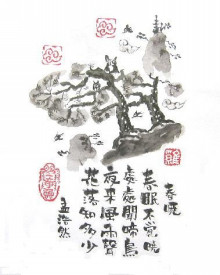 春晓
春眠不觉晓
處處聞啼鳥
夜来風雨聲
花落知多少
孟浩然